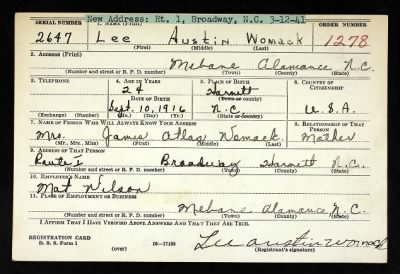 New Address: Rt. 1, Broadway, N.C. 3-12-41
SERIAL NUMBER 1. NAME (Print) ORDER NUMBER
2647 Lee Austin Womack 1278
(First) (Middle) (Last)
2. ADDRESS (Print)
Mebane Alamance N.C.
(Number and street or R. F. D. number) (Town) (County) (State)
3. TELEPHONE 4. AGE IN YEARS 5. PLACE OF BIRTH 6. COUNTRY OF CITIZENSHIP
24 Harnett
DATE OF BIRTH (Town or county)
Sept. 10, 1916 N.C. U.S.A.
(Exchange) (Number) (Mo.) (Day) (Yr.) (State or country)
7. NAME OF PERSON WHO WILL ALWAYS KNOW YOUR ADDRESS 8. RELATIONSHIP OF THAT PERSON
Mrs. Jamie Atlas Womack Mother
(Mr., Mrs., Miss) (First) (Middle) (Last)
9. ADDRESS OF THAT PERSON
Route 1 Broadway Harnett N.C.
(Number and street or R. F. D. number) (Town) (County) (State)
10. EMPLOYER'S NAME
Mat Wilson
11. PLACE OF EMPLOYMENT OR BUSINESS
Mebane Alamance N.C.
(Number and street or R. F. D. number) (Town) (County) (State)
I AFFIRM THAT I HAVE VERIFIED ABOVE ANSWERS AND THAT THEY ARE TRUE.
REGISTRATION CARD
D. S. S. Form 1 (over) 16-17105 Lee Austin Womack
(Registrant's signature)